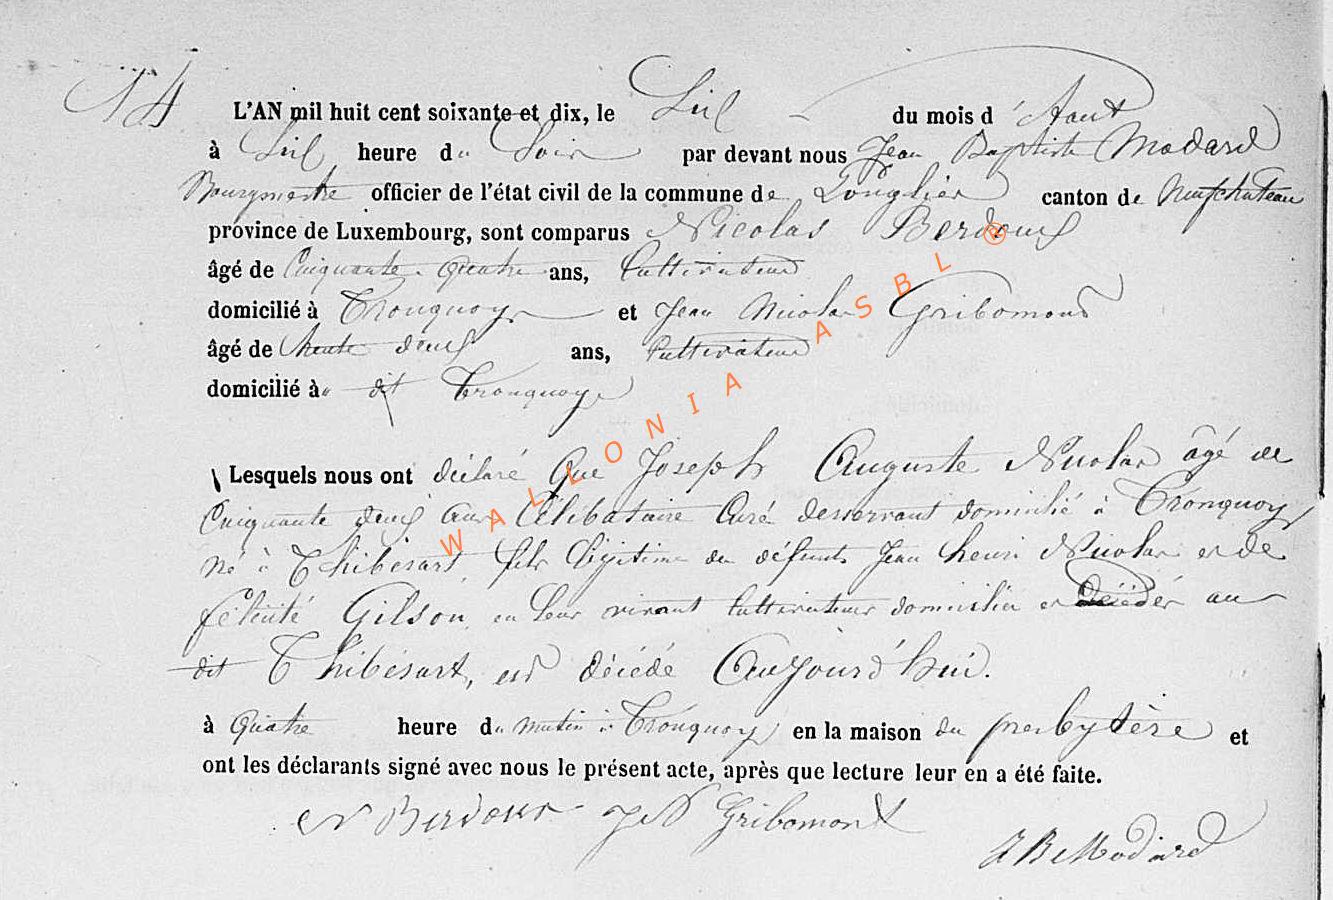 14
L'AN mil huit cent soixante et dix, le Six du mois d' Aout
à Six heure du Soir par devant nous Jean Baptiste Modard
Bourgmestre officier de l'état civil de la commune de Longlier canton de Neufchateau
province de Luxembourg, sont comparus Nicolas Berdoux
âgé de Cinquante Quatre ans, Cultivateur
domicilié à Tronquoy et Jean Nicolas Gribomont
âgé de trente deux ans, Cultivateur
domicilié à dit Tronquoy
Lesquels nous ont déclaré Que Joseph Auguste Nicolas âgé de
Cinquante deux ans Célibataire Curé desservant domicilié à Tronquoy
né à Thibésart, fils légitime de défunts Jean henri Nicolas et de
félicité Gilson, en leur vivant Cultivateurs domiciliés et décédés au
dit Thibésart, est décédé Aujourd'hui.
à Quatre heure du matin à Tronquoy en la maison du presbytère et
ont les déclarants signé avec nous le présent acte, après que lecture leur en a été faite.
N Berdoux JN Gribomont
JB Modard
WALLONIA ASBL ®